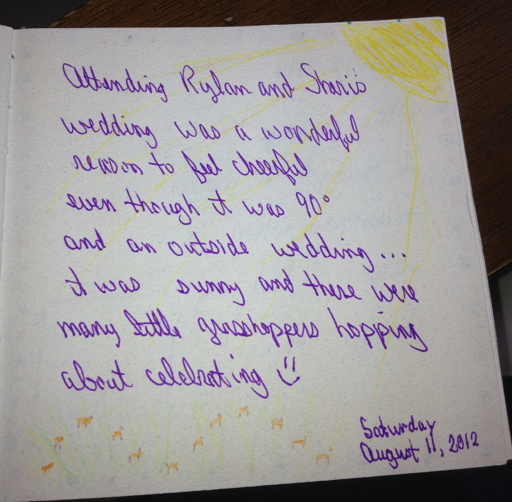 Attending Rylan and Shari's
wedding was a wonderful
reason to feel cheerful
even though it was 90°
and an outside wedding...
it was sunny and there were
many little grasshoppers hopping
about celebrating
Saturday
August 11, 2012